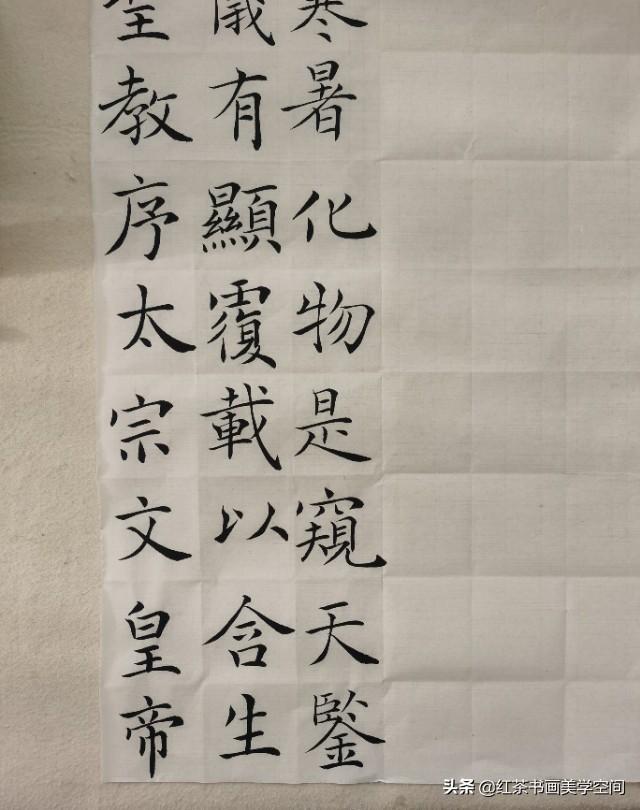 聖教序太宗文皇帝
儀有顯覆載以含生
寒暑化物是窺天鑒
头条 @红茶书画美学空间